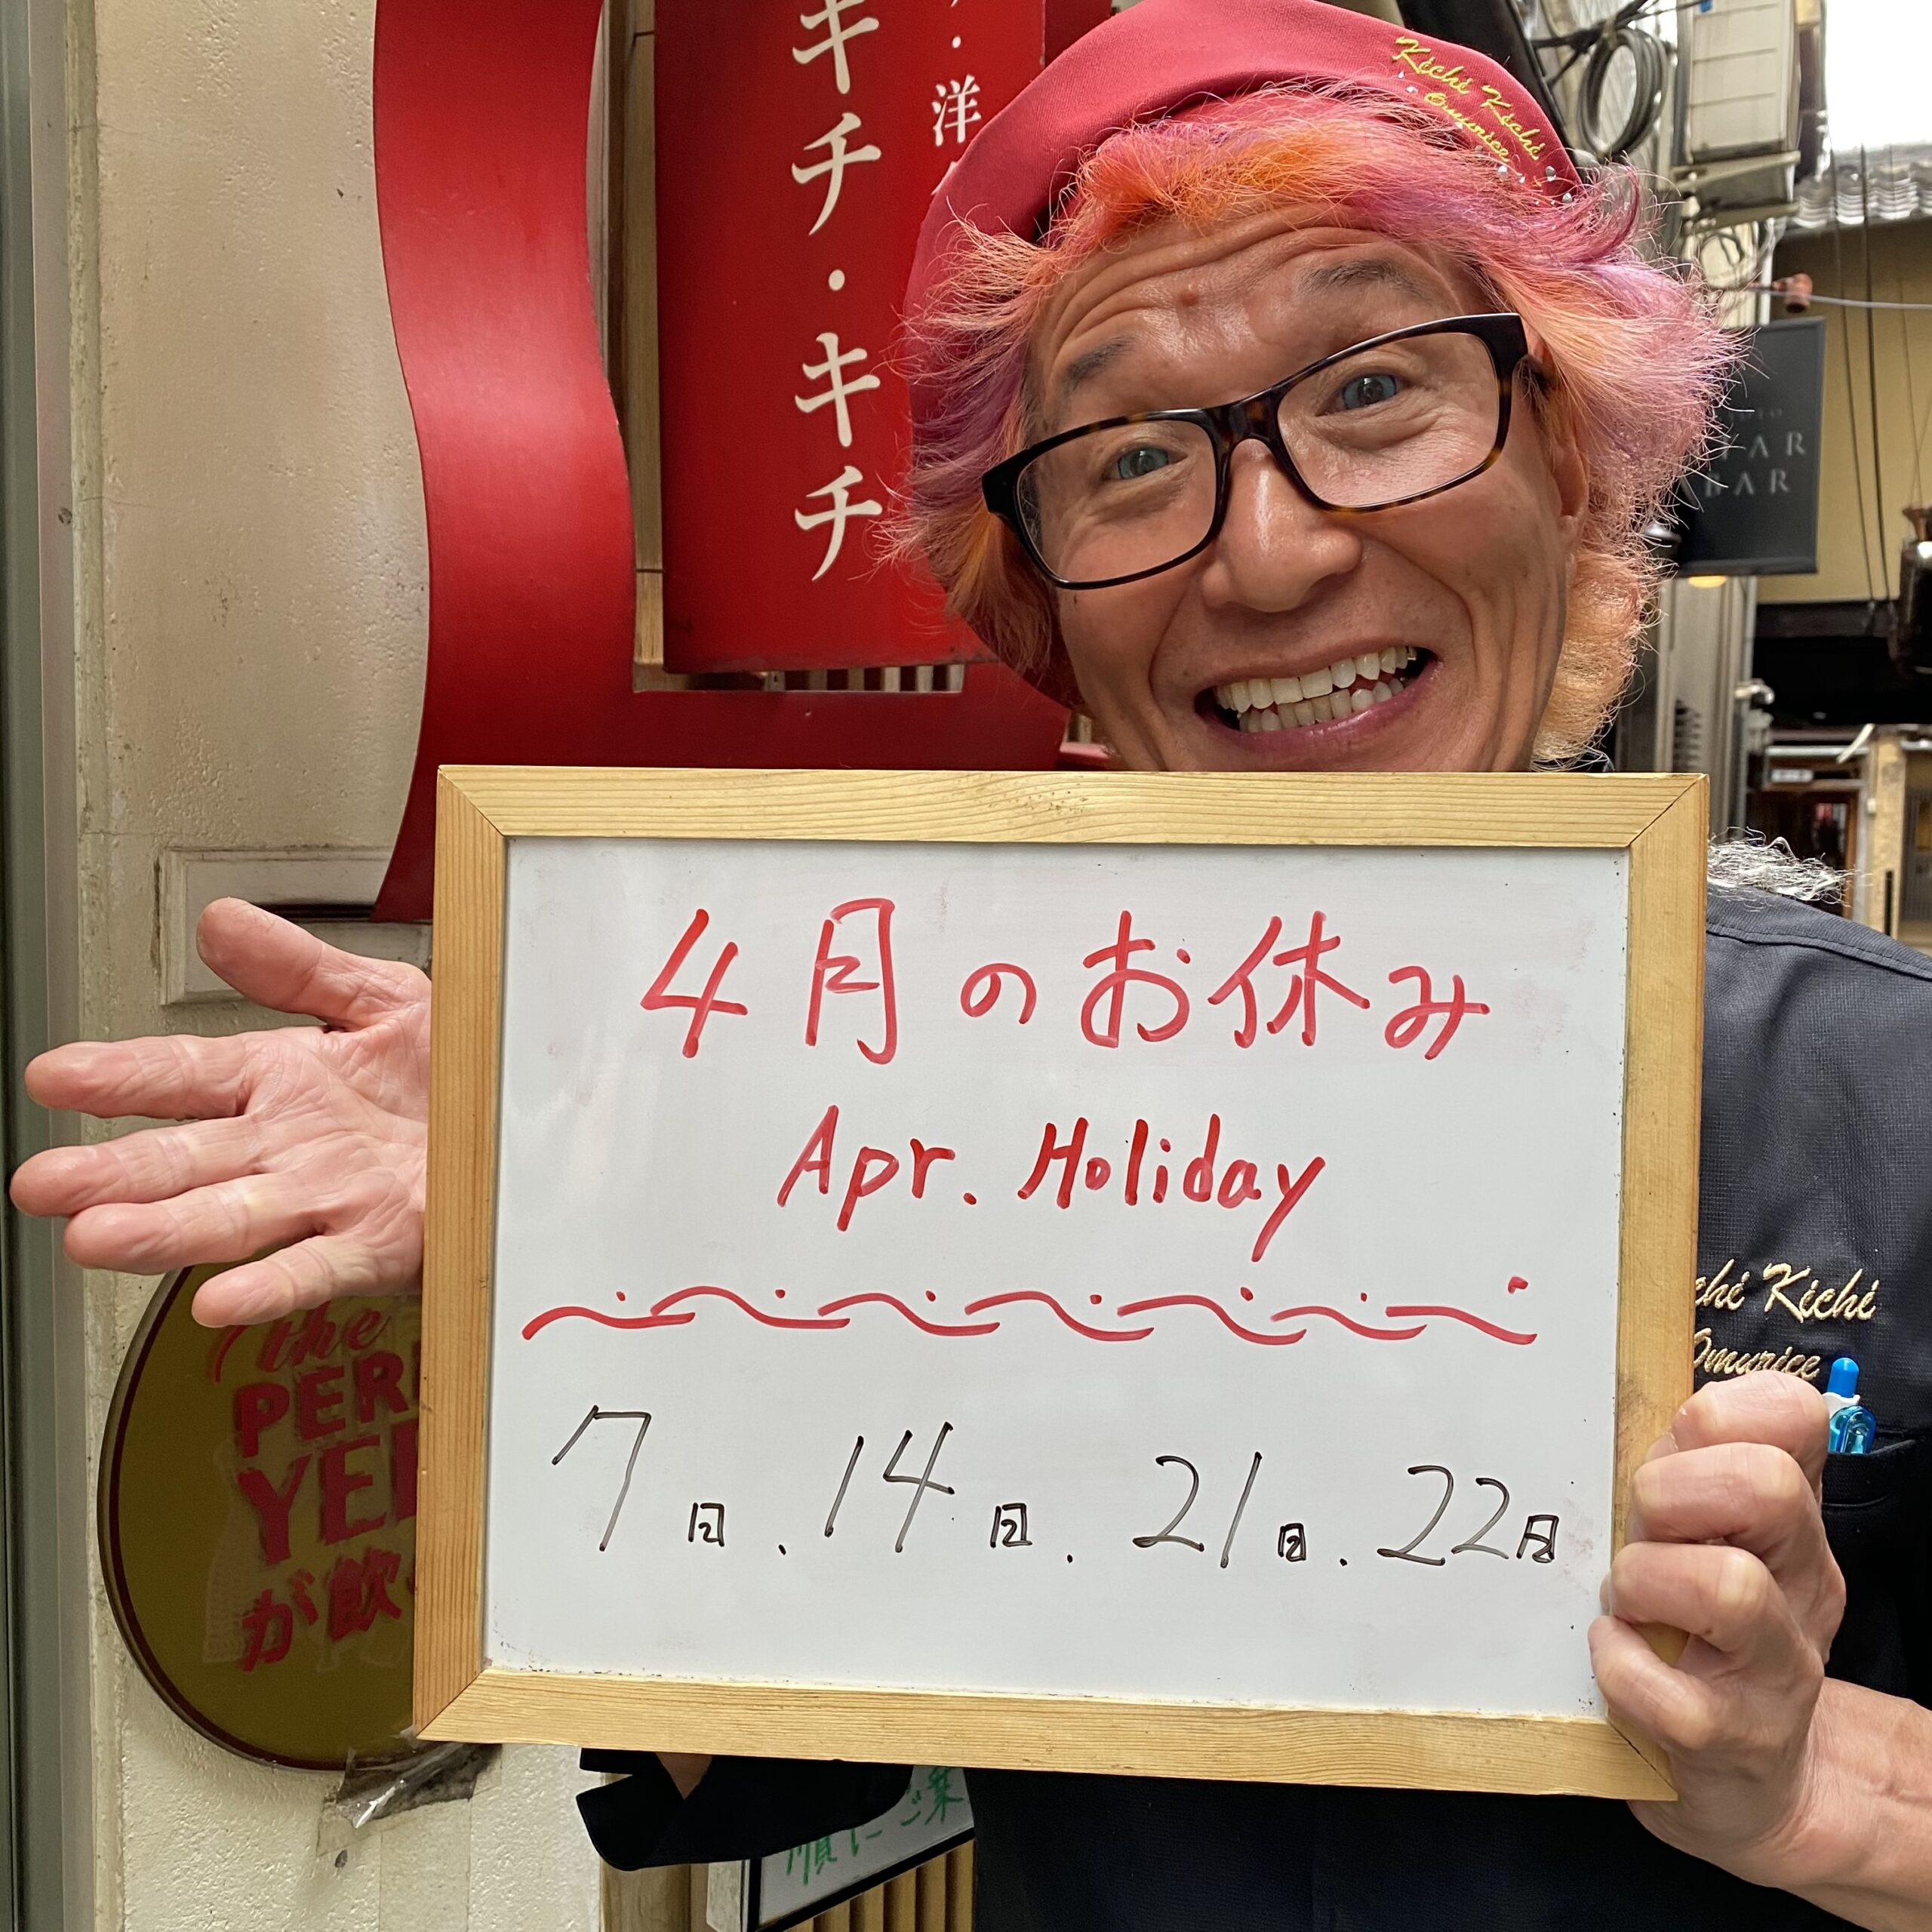 キチ・キチ
・洋
Kichi Kichi
Omurice
BAR
4月のお休み
Apr. Holiday
7日.14日.21日.22日
chi Kichi
Omurice
the
PER
YE
が飲
順にご案